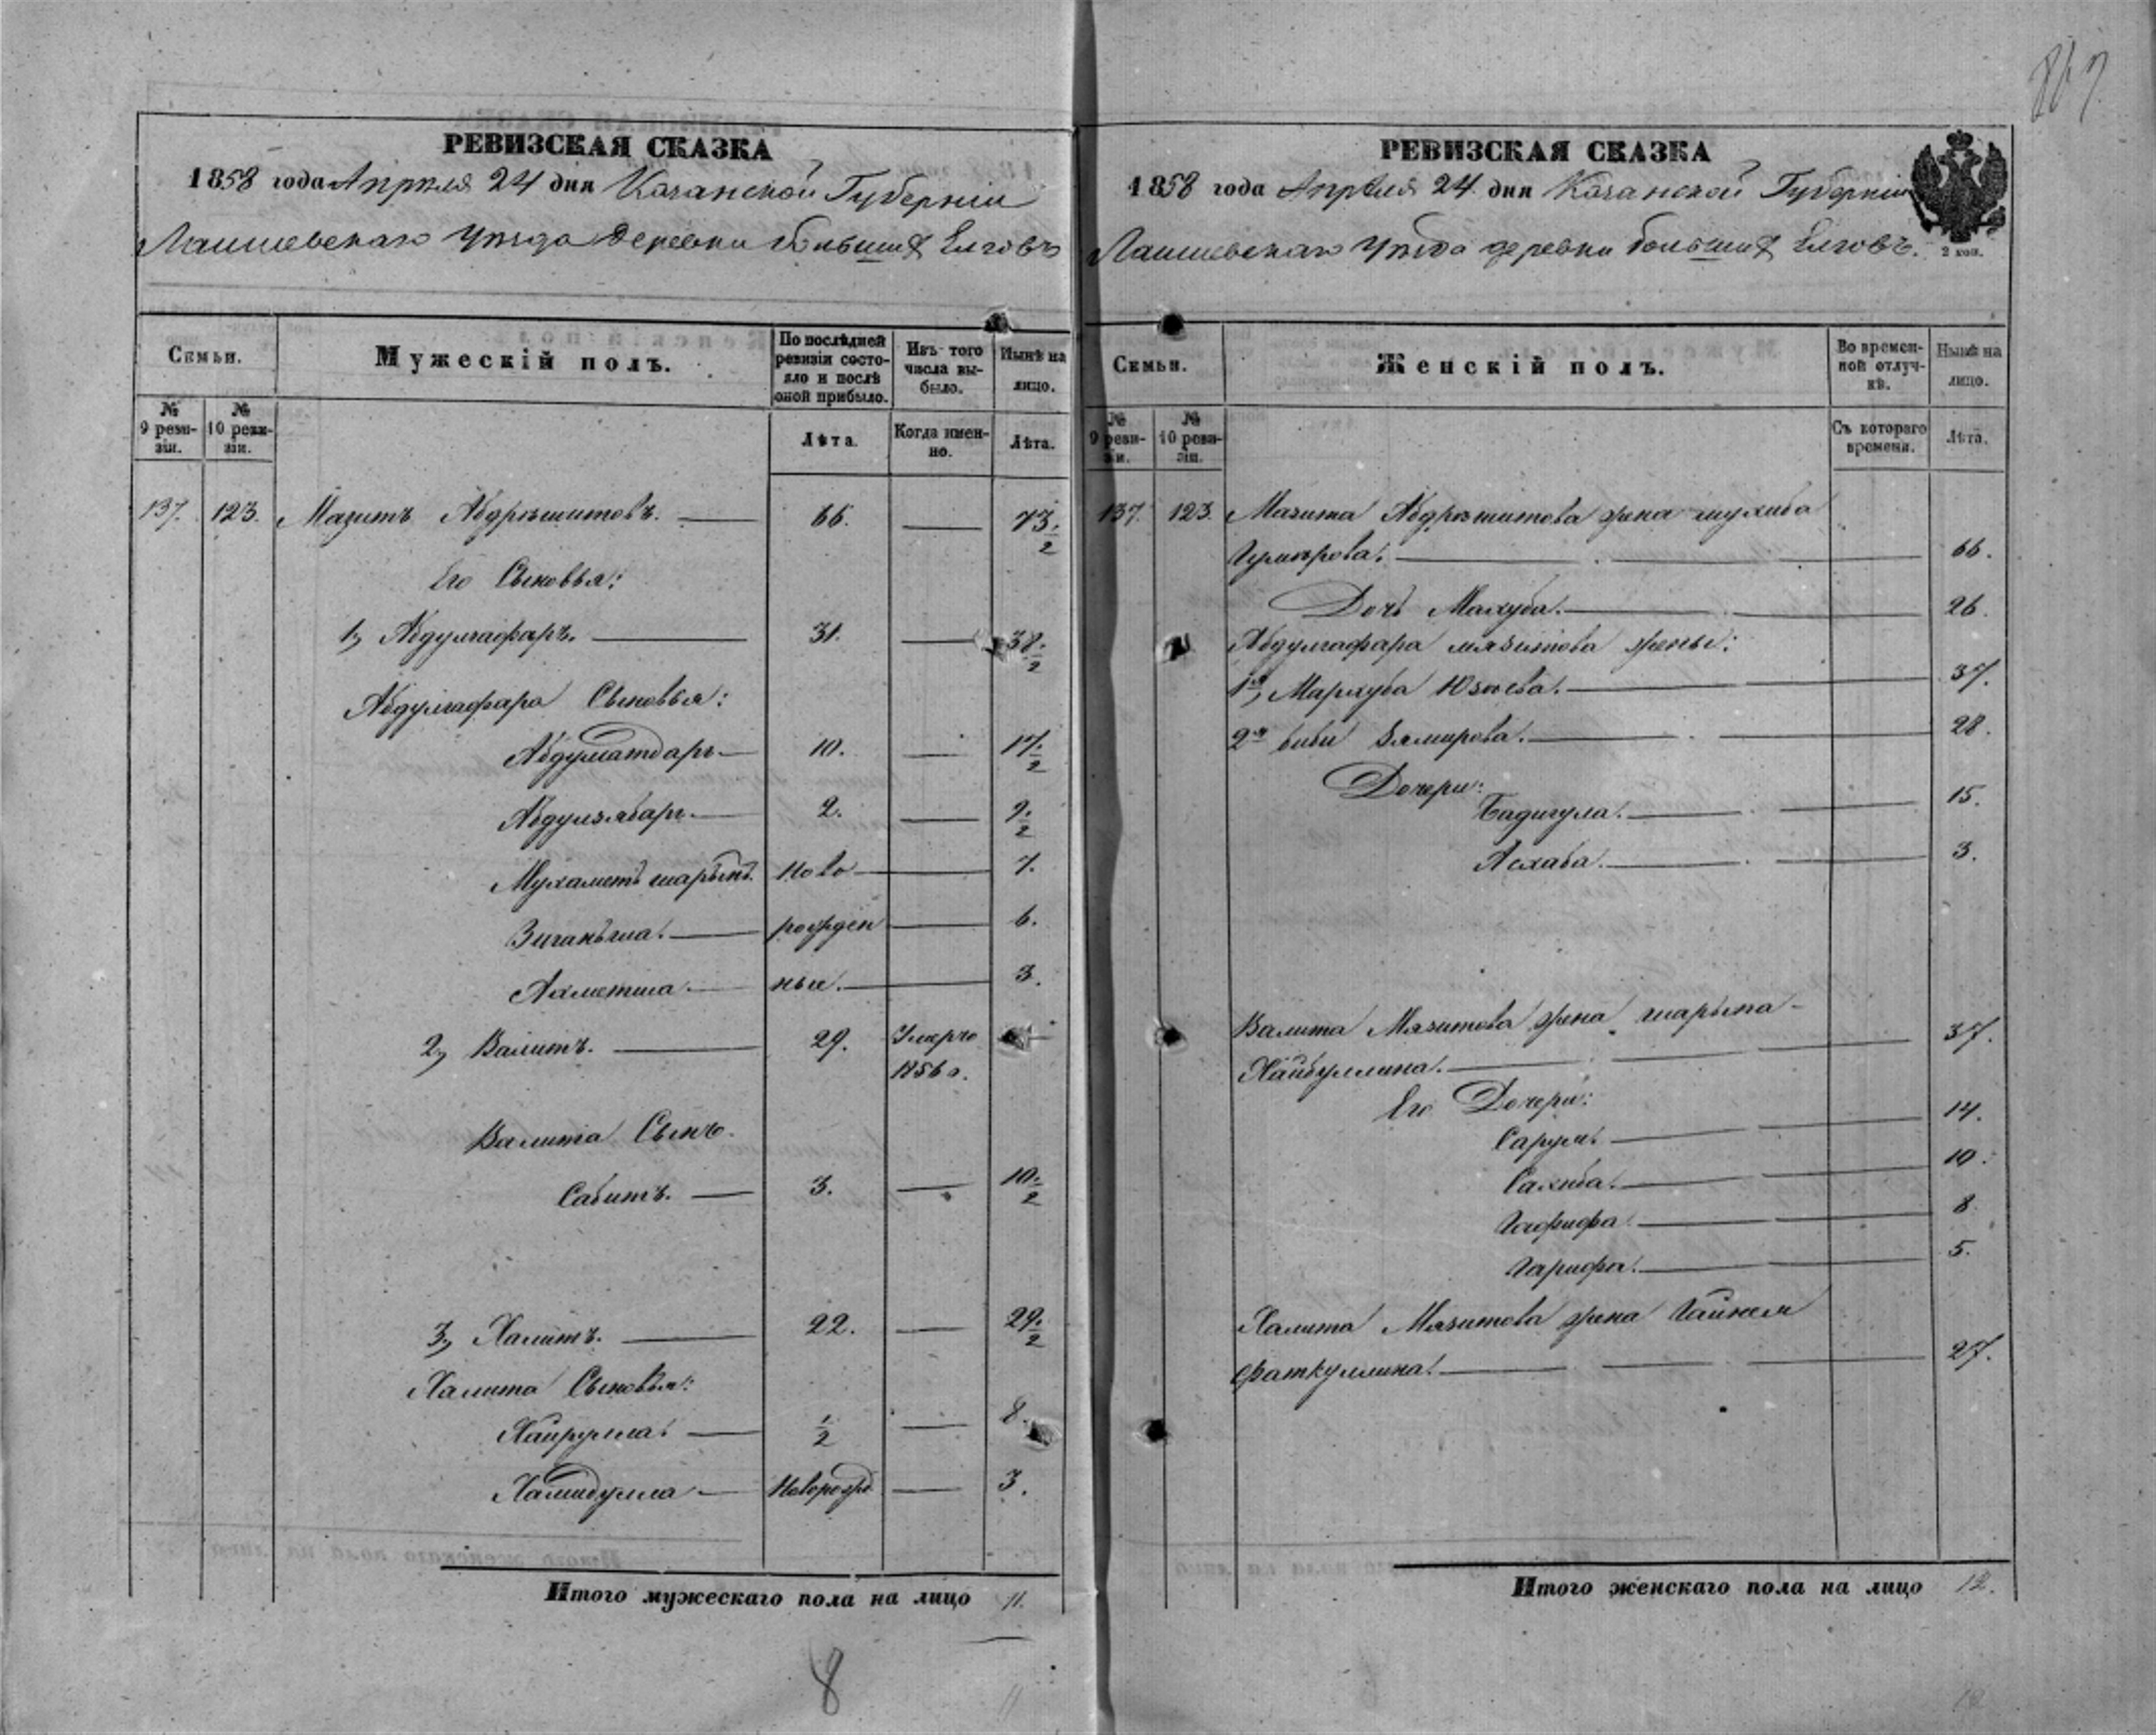 РЕВИЗСКАЯ СКАЗКА
1858 года Апреля 24 дня Казанской Губерніи
Лаишевскаго Уѣзда деревни большихъ Елговъ
Семьи.
Мужескій полъ.
По послѣдней ревизіи состояло и послѣ оной прибыло.
Изъ того числа выбыло.
Нынѣ на лицо.
№ 9 ревизіи.
№ 10 ревизіи.
Лѣта.
Когда именно.
Лѣта.
137. 123. Мазитъ Абдрешитовъ. 66. 73.½
Его Сыновья:
1, Абдулгафаръ. 31. 38.½
Абдулгафара Сыновья:
Абдулсатдаръ 10. 17.½
Абдулзябаръ 2. 9.½
Мухаметъ шарыпъ. Ново 7.
Зиганьша. рожден 6.
Ахметша ные. 3.
2, Валитъ. 29. Умеръ
1856 г.
Валита Сынъ.
Сабитъ. 3. 10.½
3, Халитъ. 22. 29.½
Халита Сыновья:
Хайрулла. ½ 8.
Хамидулла Норорожд 3.
Итого мужескаго пола на лицо 11.
8
867
РЕВИЗСКАЯ СКАЗКА
1858 года Апреля 24 дня Казанской Губерніи
Лаишевскаго Уѣзда деревни большихъ Елговъ.
2 коп.
Семьи.
Женскій полъ.
Во временной отлучкѣ.
Нынѣ на лицо.
№ 9 ревизіи.
№ 10 ревизіи.
Съ котораго времени.
Лѣта.
137. 123. Мазита Абдрешитова жена
66.
Дочь Махуба. 26.
Абдулгафара мязитова жены:
1я, Мархуба 37.
2я биби 28.
Дочери:
Бадигула. 15.
Асхаба. 3.
Валита Мязитова жена шарыпа
Хайбуллина. 37.
Его Дочери:
14.
Сахиба. 10.
Гафифа. 8.
Гарифа. 5.
Халита Мязитова жена Гайния
Фаткуллина. 27.
Итого женскаго пола на лицо 12.